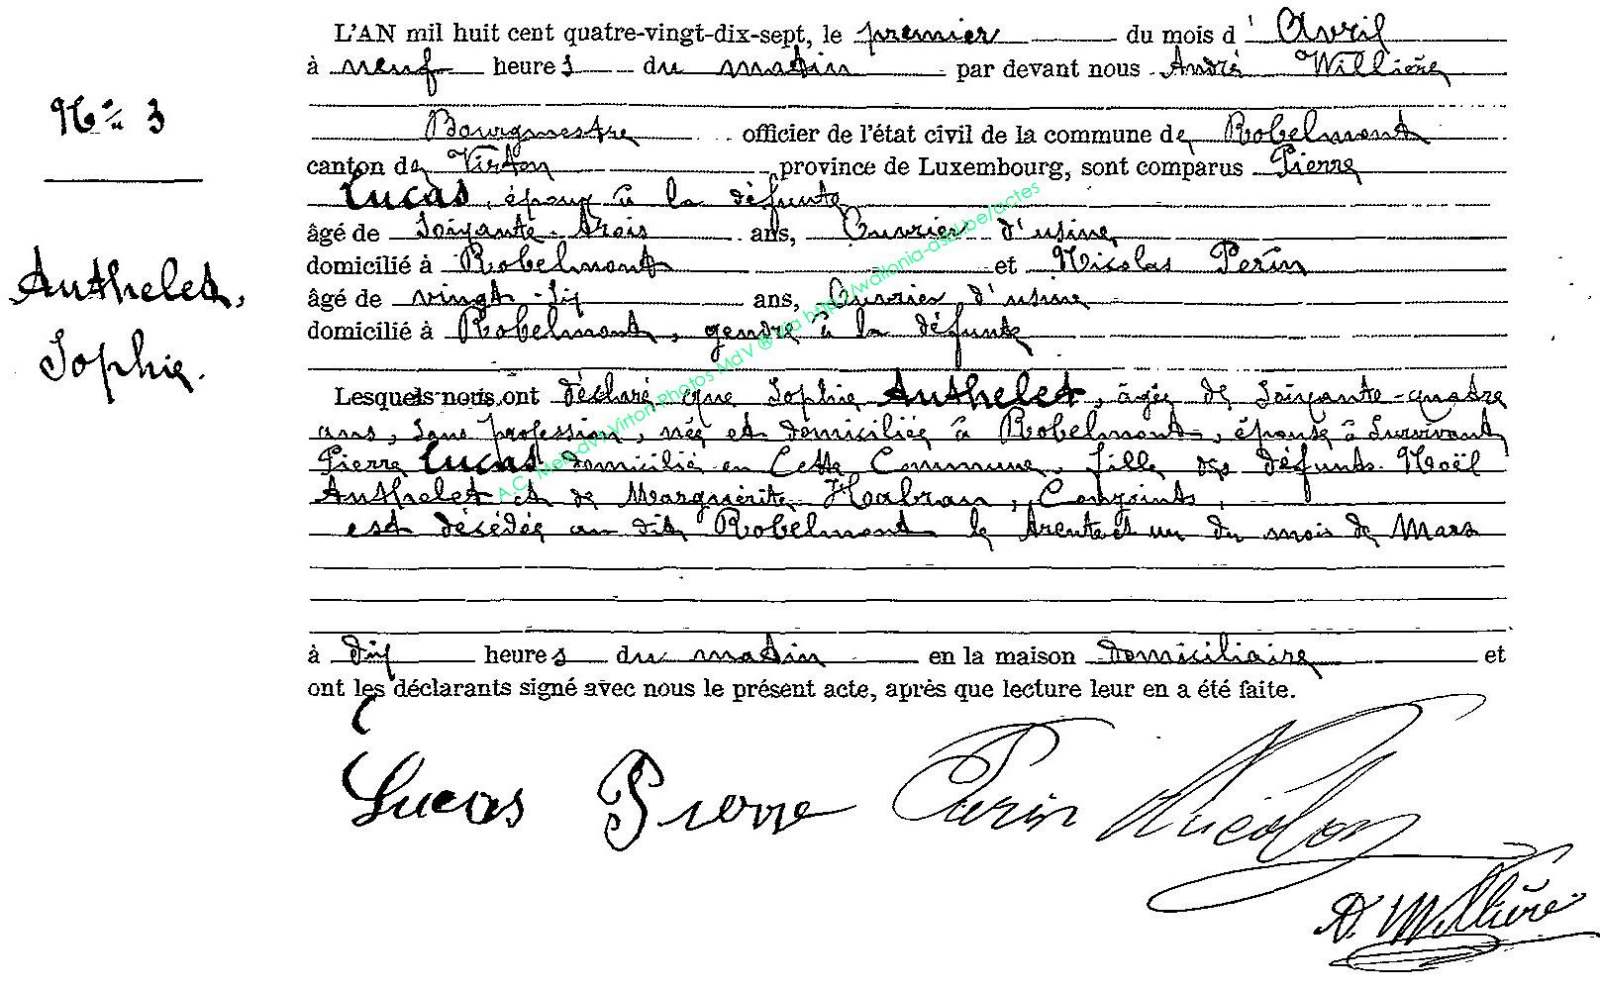 L'AN mil huit cent quatre-vingt-dix-sept, le premier du mois d' Avril
à neuf heures du matin par devant nous André Willière
N° 3
Bourgmestre officier de l'état civil de la commune de Robelmont
canton de Virton province de Luxembourg, sont comparus Pierre
Lucas, époux à la défunte
âgé de Soixante-trois ans, Ouvrier d'usine,
domicilié à Robelmont et Nicolas Perin
Authelet,
âgé de vingt-six ans, Ouvrier d'usine
domicilié à Robelmont, gendre à la défunte
Sophie.
Lesquels nous ont déclaré que Sophie Authelet, âgée de Soixante-quatre
ans, Sans profession, née et domiciliée à Robelmont, épouse à Survivant
Pierre Lucas domicilié en Cette Commune, fille des défunts Noël
Authelet et de Marguérite Habran, Conjoints,
est décédée au dit Robelmont le trente et un du mois de Mars
à dix heures du matin en la maison domiciliaire et
ont les déclarants signé avec nous le présent acte, après que lecture leur en a été faite.
Lucas Pierre Perin Nicolas
A. Willière
A.C. Virton Photos MdV ® via http://wallonia-asbl.be/actes